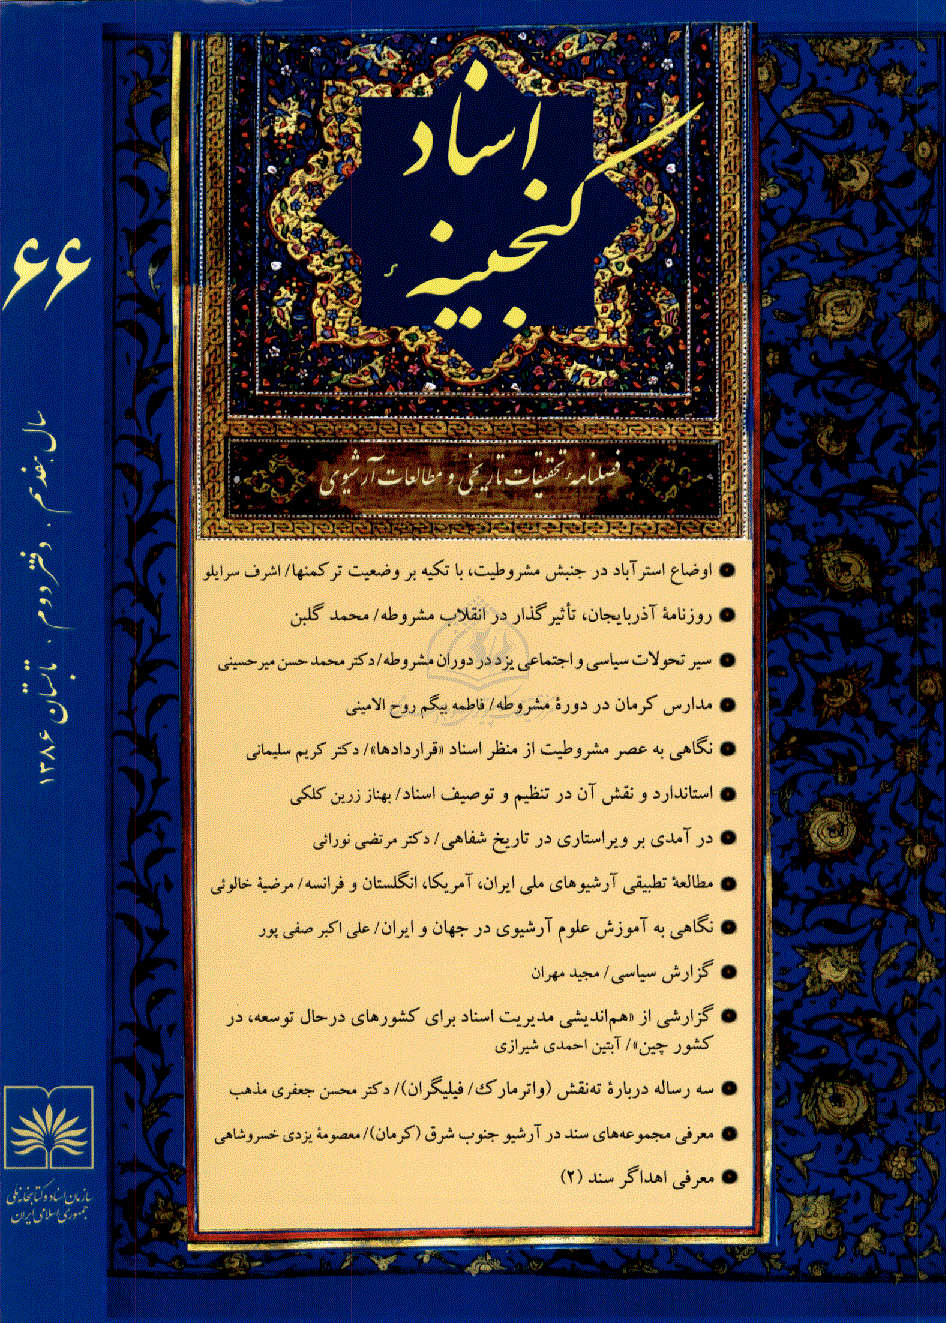 گنجینهٔ
اسناد
فصلنامهٔ تحقیقات تاریخی و مطالعات آرشیوی
۶۶
سال هفدهم . دفتر دوم . تابستان ۱۳۸۶
اوضاع استرآباد در جنبش مشروطیت، با تکیه بر وضعیت ترکمنها/ اشرف سرایلو
روزنامهٔ آذربایجان، تأثیرگذار در انقلاب مشروطه/ محمد گلبن
سیر تحولات سیاسی و اجتماعی یزد در دوران مشروطه/ دکتر محمد حسن میرحسینی
مدارس کرمان در دورهٔ مشروطه/ فاطمه بیگم روح الامینی
نگاهی به عصر مشروطیت از منظر اسناد «قراردادها»/ دکتر کریم سلیمانی
استاندارد و نقش آن در تنظیم و توصیف اسناد/ بهناز زرین کلکی
در آمدی بر ویراستاری در تاریخ شفاهی/ دکتر مرتضی نورائی
مطالعهٔ تطبیقی آرشیوهای ملی ایران، آمریکا، انگلستان و فرانسه/ مرضیهٔ خالوئی
نگاهی به آموزش علوم آرشیوی در جهان و ایران/ علی اکبر صفی پور
گزارش سیاسی/ مجید مهران
گزارشی از «هم‌اندیشی مدیریت اسناد برای کشورهای درحال توسعه، در
کشور چین»/ آبتین احمدی شیرازی
سه رساله دربارهٔ ته‌نقش (واترمارک/ فیلیگران)/ دکتر محسن جعفری مذهب
معرفی مجموعه‌های سند در آرشیو جنوب شرق (کرمان)/ معصومهٔ یزدی خسروشاهی
معرفی اهداگر سند (۲)
سازمان اسناد و کتابخانه ملی
جمهوری اسلامی ایران